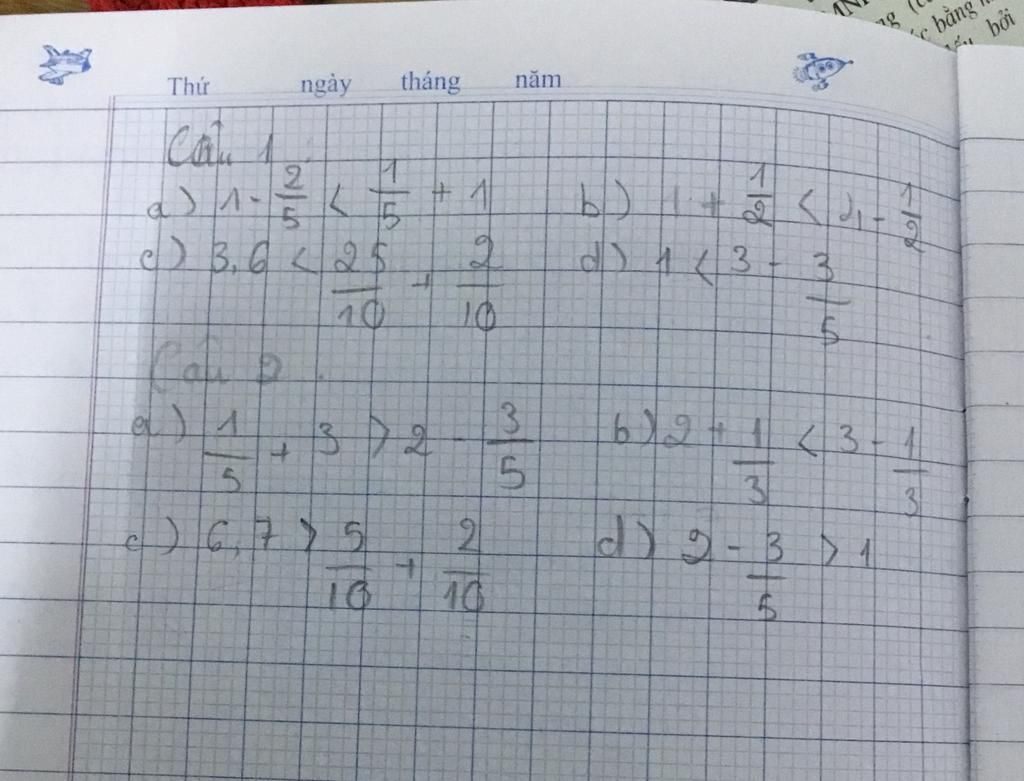 MN
ng (c
c bằng n
bởi
Thứ ngày tháng năm
Câu 1
a) 1 - 2/5 < 1/5 + 1 b) 1 + 1/2 < - 1/2
c) 3,6 < 25/10 + 2/10 d) 1 < 3 - 3/5
Câu 2
a) 1/5 + 3 > 2 - 3/5 b) 2 + 1/3 < 3 - 1/3
c) 6,7 > 5/10 + 2/10 d) 2 - 3/5 > 1